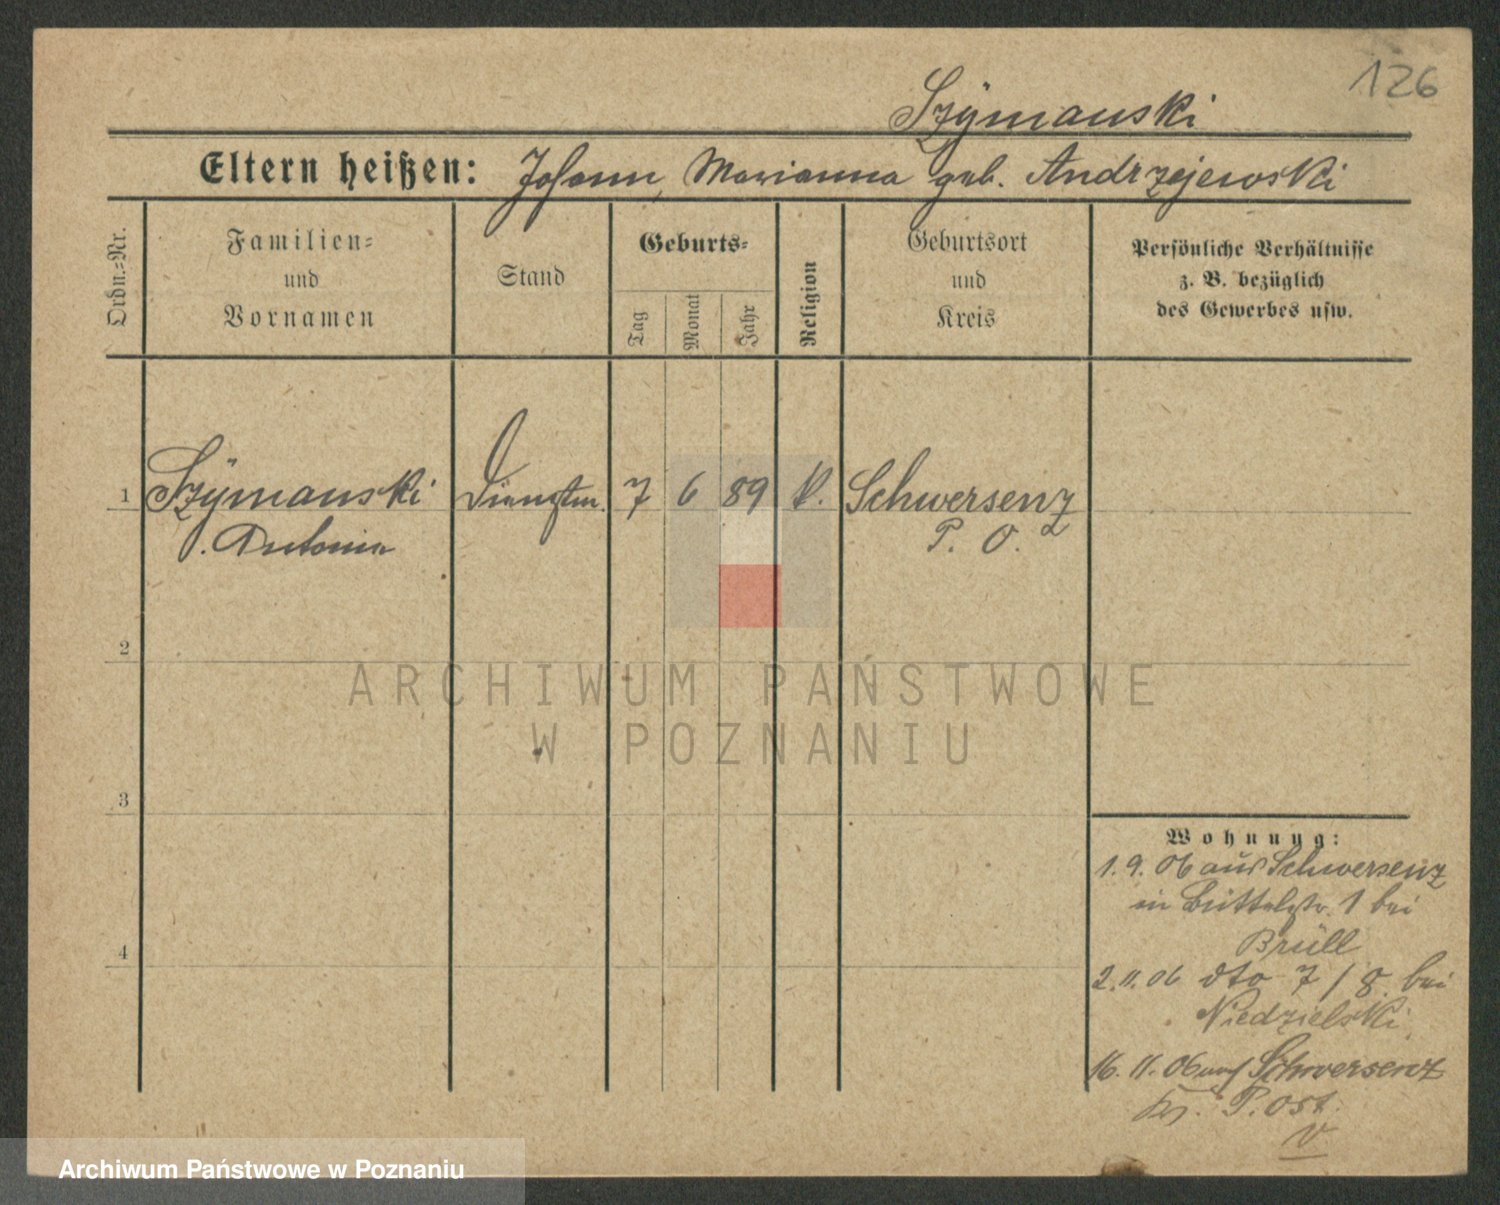 126
Szÿmanski
Eltern heißen: Johann, Marianna geb. Andrzejewski
Ordn.=Nr.
Familien=
und
Vornamen
Stand
Geburts=
Tag
Monat
Jahr
Religion
Geburtsort
und
Kreis
Persönliche Verhältnisse
z. B. bezüglich
des Gewerbes usw.
1 Szÿmanski Dienstm. 7 6 89 k. Schwersenz
Antonia P. O.
2
ARCHIWUM PAŃSTWOWE
W POZNANIU
3
4
Wohnung:
1. 9. 06 aus Schwersenz
in Büttelstr. 1 bei
Brüll
2. 11. 06 dto 7/8 bei
Niedzielski
16. 11. 06 nach Schwersenz
Kr. P. Ost.
Archiwum Państwowe w Poznaniu